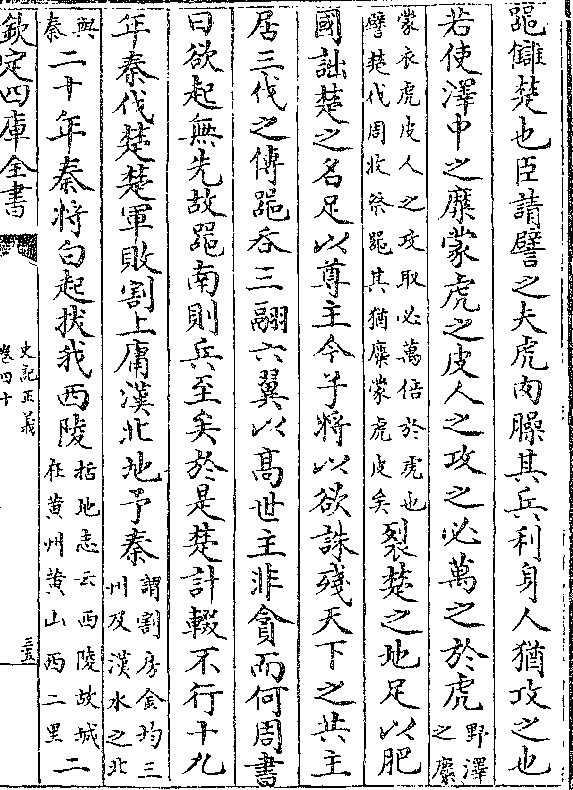 器讎楚也臣請譬之夫虎肉臊其兵利身人猶攻之也
若使澤中之麋蒙虎之皮人之攻之必萬之於虎野澤之麋
蒙衣虎皮人之攻取必萬倍於虎也譬楚伐周收祭器其猶麋蒙虎皮矣裂楚之地足以肥
國詘楚之名足以尊主今子將以欲誅殘天下之共主
居三代之傳器吞三翮六翼以高世主非貪而何周書
曰欲起無先故器南則兵至矣於是楚計輟不行十九
年秦伐楚楚軍敗割上庸漢北地予秦謂割房金均三州及漢水之北
與秦二十年秦將白起拔我西陵括地志云西陵故城在黄州黄山西二里二
欽定四庫全書
史記正義
卷四十
三五